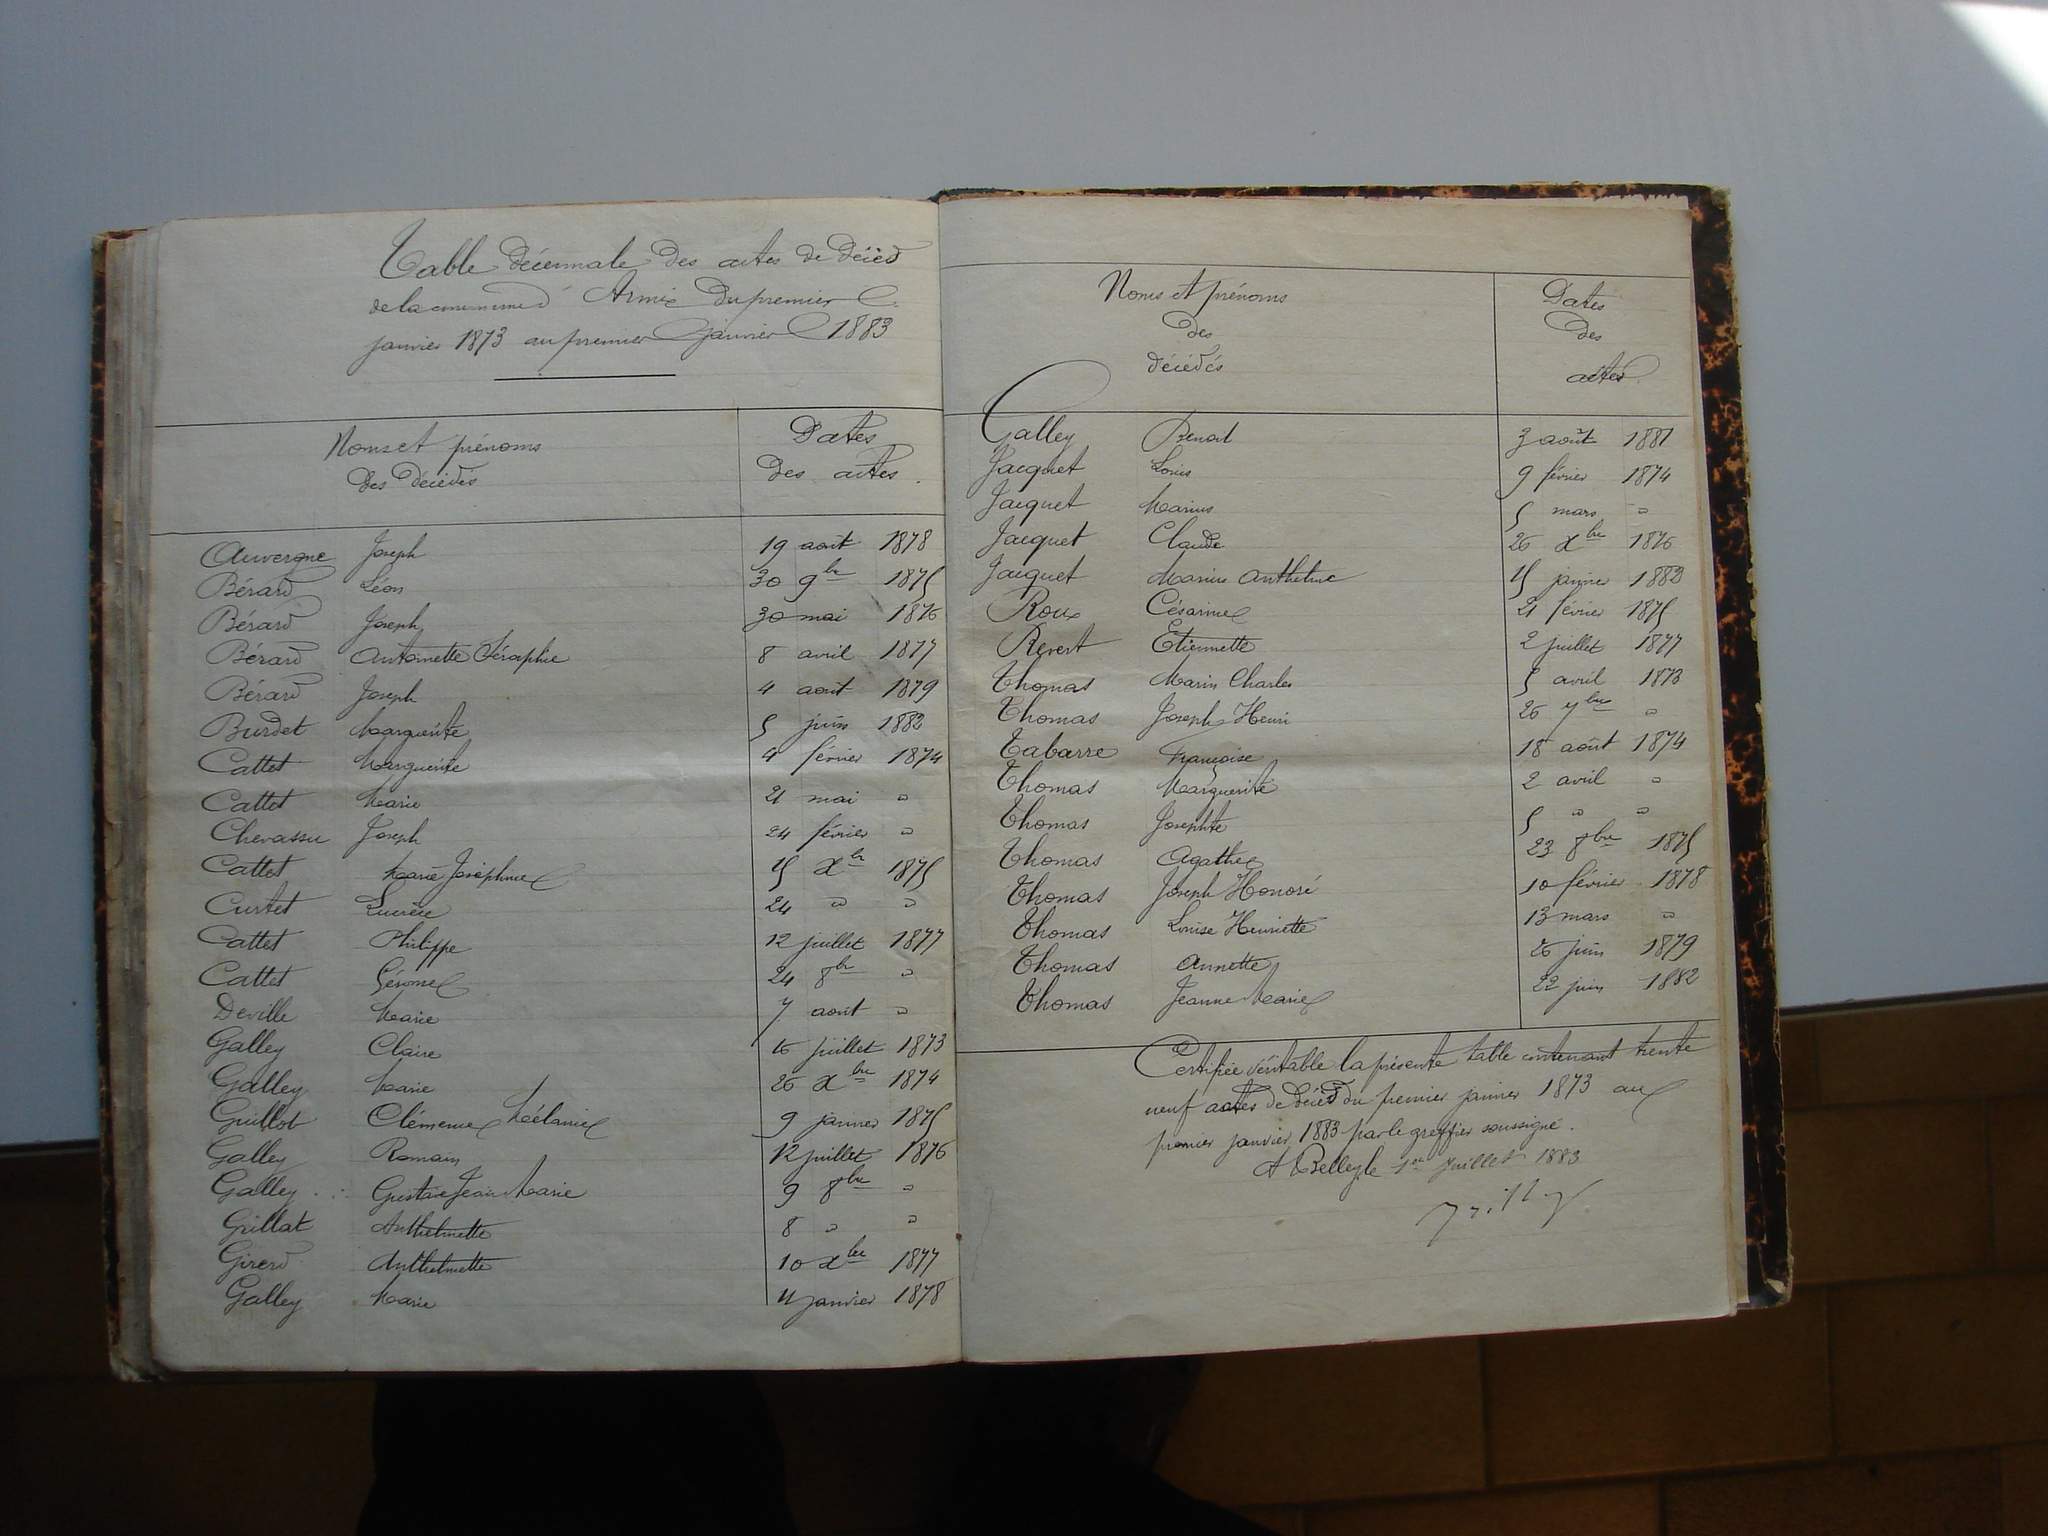 Table décennale des actes de décès
de la commune d'Armix du premier
janvier 1873 au premier janvier 1883
Noms et prénoms
des décédés
Dates
des actes.
Auvergne Joseph 19 août 1878
Bérard Léon 30 9bre 1875
Bérard Joseph 30 mai 1876
Bérard Antoinette Séraphie 8 avril 1877
Bérard Joseph 4 août 1879
Burdet Marguerite 5 juin 1882
Cattet Marguerite 4 février 1874
Cattet Marie 21 mai "
Chevassu Joseph 24 février "
Cattet Marie Joséphine 15 Xbre 1875
Curtet Lucrèce 24 " "
Cattet Philippe 12 juillet 1877
Cattet Gérome 24 8bre "
Deville Marie 7 août "
Galley Claire 16 juillet 1873
Galley Marie 26 Xbre 1874
Guillot Clémence Mélanie 9 janvier 1875
Galley Romain 12 juillet 1876
Galley Gustave Jean Marie 9 8bre "
Grillat Anthelmette 8 " "
Girerd Anthelmette 10 Xbre 1877
Galley Marie 11 janvier 1878
Noms et prénoms
des
décédés
Dates
des
actes.
Galley Benoit 3 août 1881
Jacquet Louis 9 février 1874
Jacquet Marius 5 mars "
Jacquet Claude 26 Xbre 1876
Jacquet Marius Anthelme 15 janvier 1882
Roux Césarine 21 février 1875
Revert Etiennette 2 juillet 1877
Thomas Marin Charles 5 avril 1873
Thomas Joseph Henri 26 7bre "
Tabarre Françoise 18 août 1874
Thomas Marguerite 2 avril "
Thomas Josephte 5 " "
Thomas Agathe 23 8bre 1875
Thomas Joseph Honoré 10 février 1878
Thomas Louise Henriette 13 mars "
Thomas Annette 26 juin 1879
Thomas Jeanne Marie 22 juin 1882
Certifiée véritable la présente table contenant trente
neuf actes de décès du premier janvier 1873 au
premier janvier 1883 par le greffier soussigné.
A Belley le 1er Juillet 1883